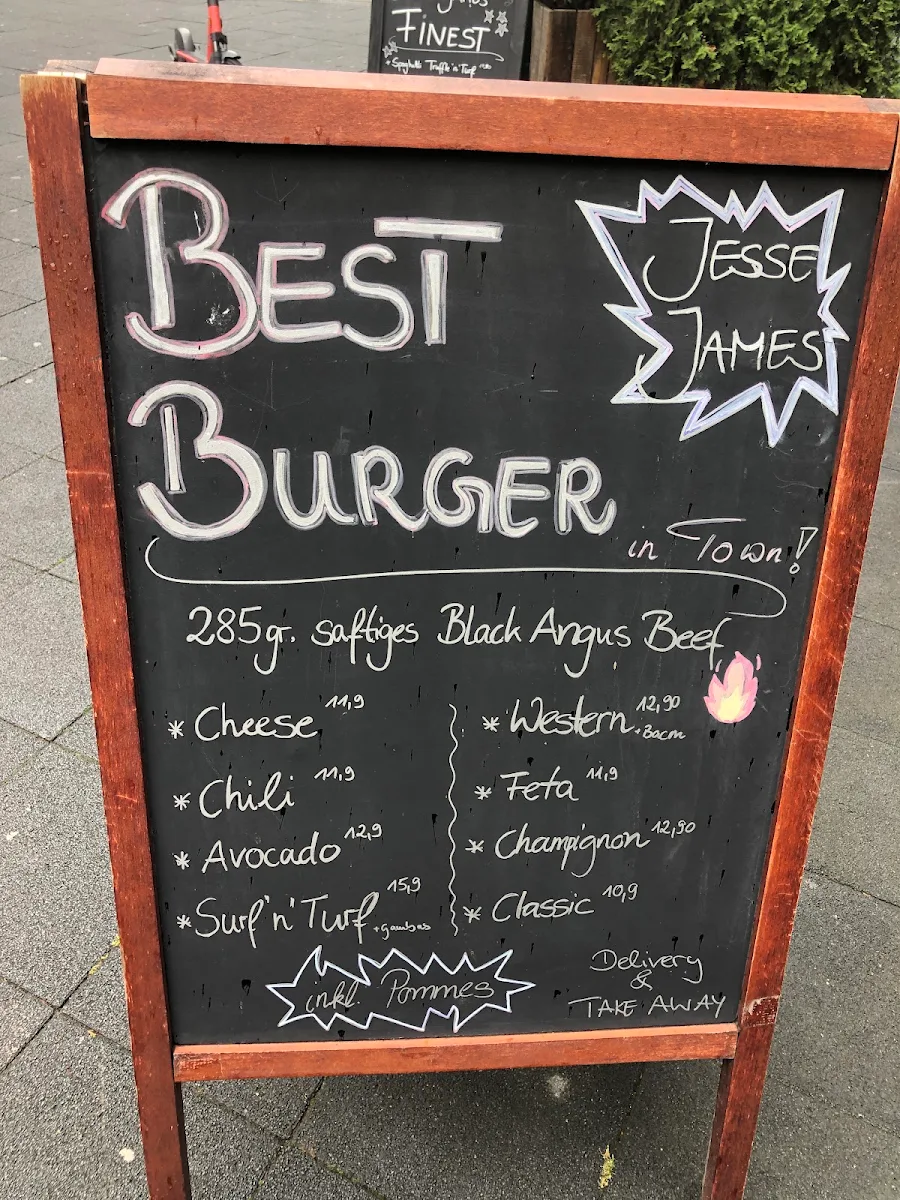 FINEST
Spaghetti Truffle'n'Turf
BEST
BURGER
in Town!
JESSE
JAMES
285gr. saftiges Black Angus Beef
* Cheese 11,9
* Chili 11,9
* Avocado 12,9
* Surf'n'Turf 15,9
+gambas
* Western 12,90
+Bacon
* Feta 11,9
* Champignon 12,90
* Classic 10,9
inkl. Pommes
Delivery
&
TAKE AWAY